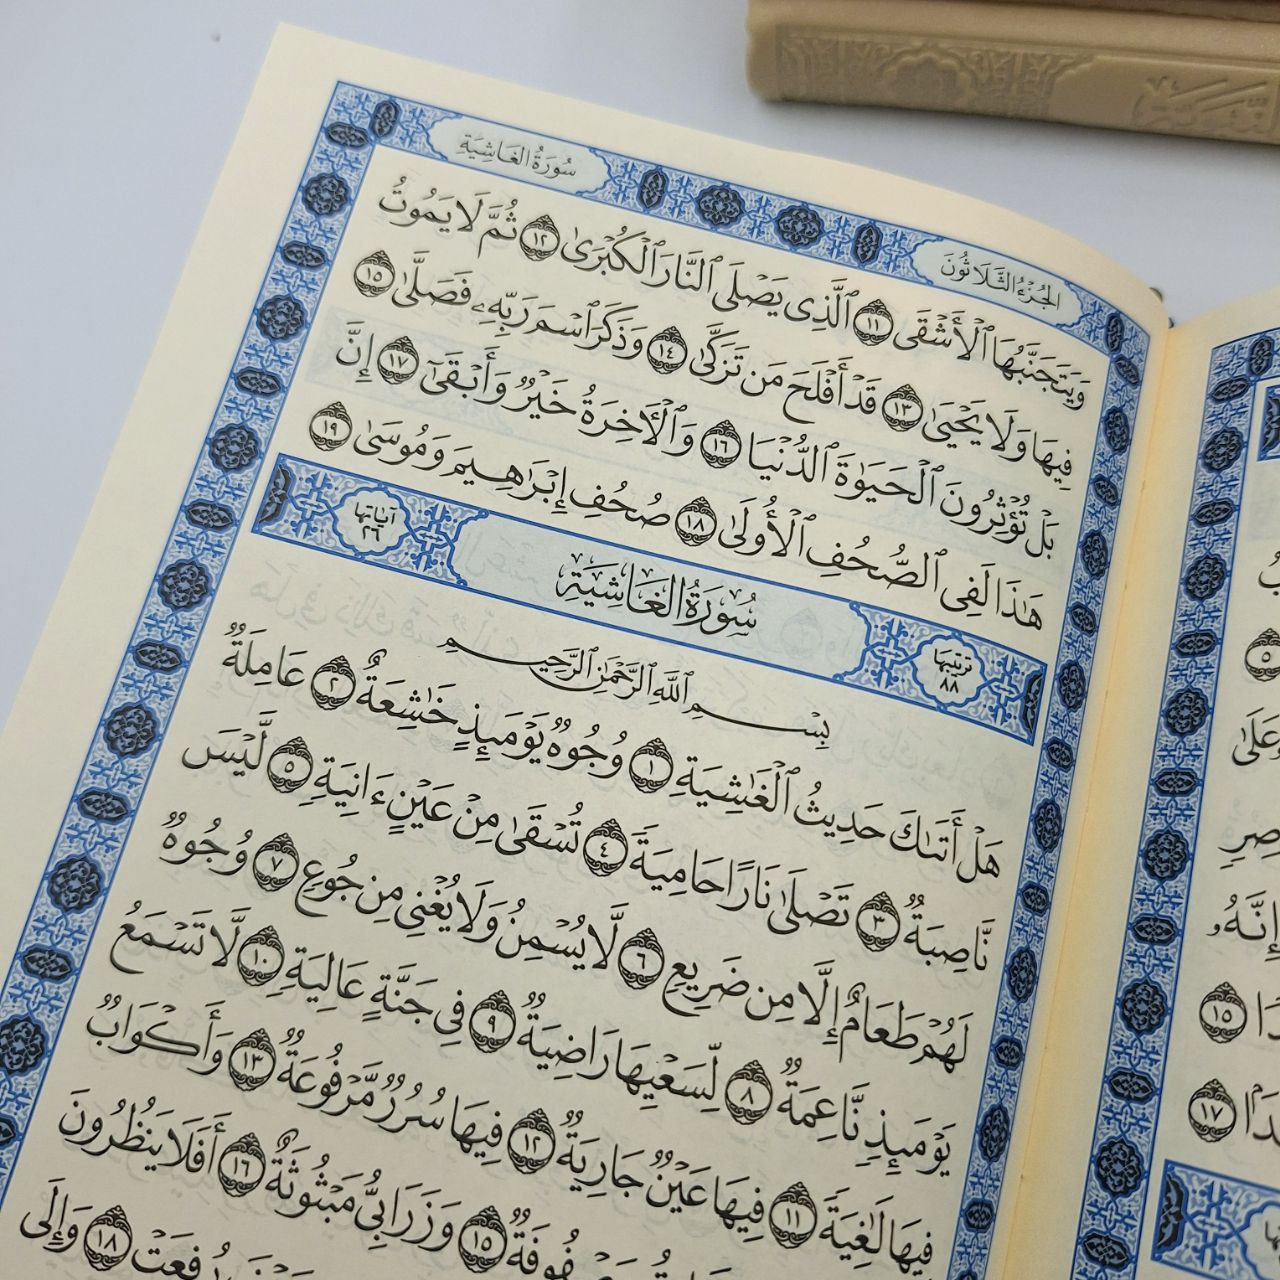 سُورَةُ الغَاشِيَةِ
الجُزْءُ الثَّلَاثُونَ
وَيَتَجَنَّبُهَا ٱلْأَشْقَى ١١ ٱلَّذِى يَصْلَى ٱلنَّارَ ٱلْكُبْرَىٰ ١٢ ثُمَّ لَا يَمُوتُ
فِيهَا وَلَا يَحْيَىٰ ١٣ قَدْ أَفْلَحَ مَن تَزَكَّىٰ ١٤ وَذَكَرَ ٱسْمَ رَبِّهِۦ فَصَلَّىٰ ١٥
بَلْ تُؤْثِرُونَ ٱلْحَيَوٰةَ ٱلدُّنْيَا ١٦ وَٱلْـَٔاخِرَةُ خَيْرٌ وَأَبْقَىٰٓ ١٧ إِنَّ
هَـٰذَا لَفِى ٱلصُّحُفِ ٱلْأُولَىٰ ١٨ صُحُفِ إِبْرَٰهِيمَ وَمُوسَىٰ ١٩
ترتيبها ٨٨ سُورَةُ الغَاشِيَةِ آياتها ٢٦
بِسْمِ ٱللَّهِ ٱلرَّحْمَـٰنِ ٱلرَّحِيمِ
هَلْ أَتَىٰكَ حَدِيثُ ٱلْغَـٰشِيَةِ ١ وُجُوهٌ يَوْمَئِذٍ خَـٰشِعَةٌ ٢ عَامِلَةٌ
نَّاصِبَةٌ ٣ تَصْلَىٰ نَارًا حَامِيَةً ٤ تُسْقَىٰ مِنْ عَيْنٍ ءَانِيَةٍ ٥ لَّيْسَ
لَهُمْ طَعَامٌ إِلَّا مِن ضَرِيعٍ ٦ لَّا يُسْمِنُ وَلَا يُغْنِى مِن جُوعٍ ٧ وُجُوهٌ
يَوْمَئِذٍ نَّاعِمَةٌ ٨ لِّسَعْيِهَا رَاضِيَةٌ ٩ فِى جَنَّةٍ عَالِيَةٍ ١٠ لَّا تَسْمَعُ
فِيهَا لَـٰغِيَةً ١١ فِيهَا عَيْنٌ جَارِيَةٌ ١٢ فِيهَا سُرُرٌ مَّرْفُوعَةٌ ١٣ وَأَكْوَابٌ
١٥ وَزَرَابِىُّ مَبْثُوثَةٌ ١٦ أَفَلَا يَنظُرُونَ
١٨ وَإِلَى
٥
عَلَىٰ
إِنَّهُۥ
١٥
١٧